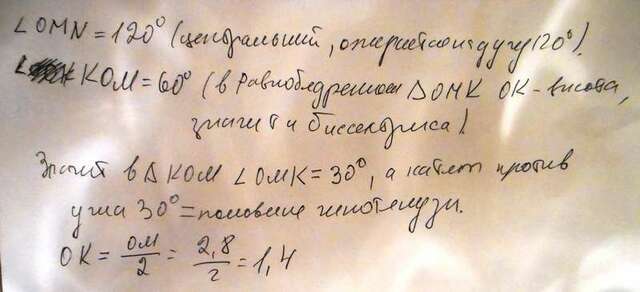 ∠OMN = 120° (центральный, опирается на дугу 120°).
∠КОМ = 60° (в равнобедренном ΔОМК ОК - высота,
значит и биссектриса)
Значит в Δ КОМ ∠ОМК = 30°, а катет против
угла 30° = половине гипотенузы.
ОК = ОМ/2 = 2,8/2 = 1,4